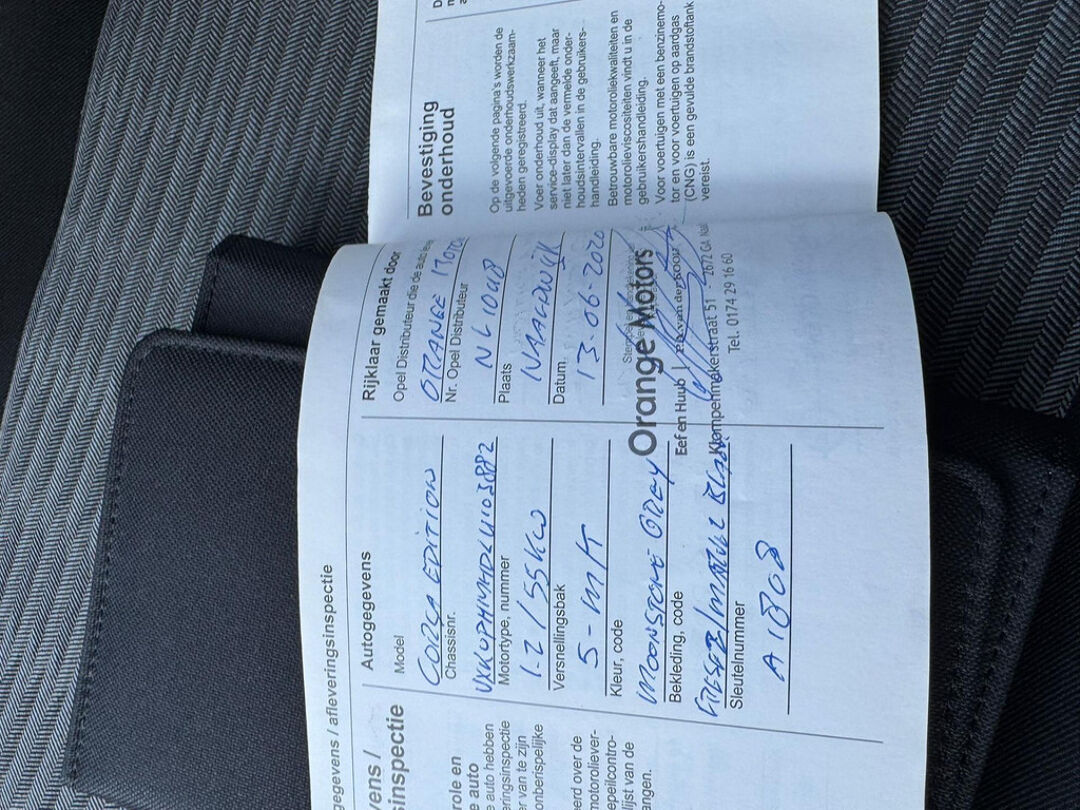 gegevens / afleveringsinspectie
vens /
sinspectie
role en
e auto
e auto hebben
eringsinspectie
er van te zijn
onberispelijke
eerd over de
motoroliever-
epeilcontro-
lijst van de
angen.
Autogegevens
Model
CORSA EDITION
Chassisnr.
Motortype, nummer
1.2 / 55KW
Versnellingsbak
5-MT
Kleur, code
MOONSTONE GREY
Bekleding, code
Sleutelnummer
A1808
Rijklaar gemaakt door
Opel Distributeur die de auto
ORANGE MOTO
Nr. Opel Distributeur
NL1048
Plaats
NAALDWIJK
Datum
13-06-2020
Orange Motors
Eef en Huub
Klompenmakerstraat 51 2672 GA
Tel. 0174 29 16 60
Bevestiging
onderhoud
Op de volgende pagina's worden de
uitgevoerde onderhoudswerkzaam-
heden geregistreerd.
Voer onderhoud uit, wanneer het
service-display dat aangeeft, maar
niet later dan de vermelde onder-
houdsintervallen in de gebruikers-
handleiding.
Betrouwbare motoroliekwaliteiten en
motorolieviscositeiten vindt u in de
gebruikershandleiding.
Voor voertuigen met een benzinemo-
tor en voor voertuigen op aardgas
(CNG) is een gevulde brandstoftank
vereist.